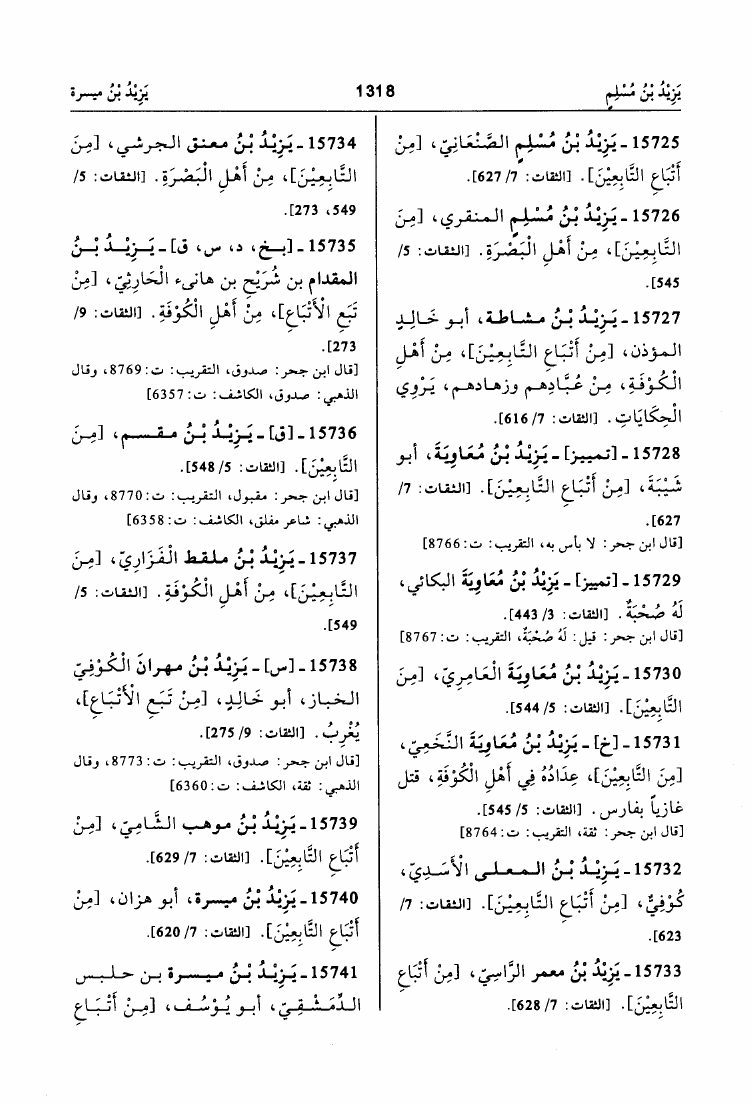 يَزِيْدُ بْنُ مُسْلِمٍ
1318
يَزِيْدُ بْنُ ميسرة
15725 - يَزِيْدُ بْنُ مُسْلِمٍ الصَّنْعَانِيّ، [مِنْ
أَتْبَاعِ التَّابِعِيْنَ]. [الثقات: 7/ 627].
15726 - يَزِيْدُ بْنُ مُسْلِمٍ المنقري، [مِنَ
التَّابِعِيْنَ]، مِنْ أَهْلِ الْبَصْرَةِ. [الثقات: 5/
545].
15727 - يَزِيْدُ بْنُ مشاطة، أبو خَالِدٍ
المؤذن، [مِنْ أَتْبَاعِ التَّابِعِيْنَ]، مِنْ أَهْلِ
الْكُوْفَةِ، مِنْ عُبَّادِهم وزهادهم، يَرْوِي
الْحِكَايَاتِ. [الثقات: 7/ 616].
15728 - [تمييز] - يَزِيْدُ بْنُ مُعَاوِيَةَ، أبو
شَيْبَةَ، [مِنْ أَتْبَاعِ التَّابِعِيْنَ]. [الثقات: 7/
627].
[قال ابن حجر: لا بأس به، التقريب: ت: 8766]
15729 - [تمييز] - يَزِيْدُ بْنُ مُعَاوِيَةَ البكائي،
لَهُ صُحْبَةٌ. [الثقات: 3/ 443].
[قال ابن حجر: قيل: لَهُ صُحْبَةٌ، التقريب: ت: 8767]
15730 - يَزِيْدُ بْنُ مُعَاوِيَةَ الْعَامِرِيّ، [مِنَ
التَّابِعِيْنَ]. [الثقات: 5/ 544].
15731 - [خ] - يَزِيْدُ بْنُ مُعَاوِيَةَ النَّخَعِيّ،
[مِنَ التَّابِعِيْنَ]، عِدَادُهُ فِي أَهْلِ الْكُوْفَةِ، قتل
غازياً بفارس. [الثقات: 5/ 545].
[قال ابن حجر: ثقة، التقريب: ت: 8764]
15732 - يَزِيْدُ بْنُ المعلى الأَسَدِيّ،
كُوْفِيٌّ، [مِنْ أَتْبَاعِ التَّابِعِيْنَ]. [الثقات: 7/
623].
15733 - يَزِيْدُ بْنُ معمر الرَّاسِبِيّ، [مِنْ أَتْبَاعِ
التَّابِعِيْنَ]. [الثقات: 7/ 628].
15734 - يَزِيْدُ بْنُ معنق الجرشي، [مِنَ
التَّابِعِيْنَ]، مِنْ أَهْلِ الْبَصْرَةِ. [الثقات: 5/
549، 273].
15735 - [بخ، د، س، ق] - يَزِيْدُ بْنُ
المقدام بن شُرَيْحِ بن هانىء الْحَارِثِيّ، [مِنْ
تَبَعِ الْأَتْبَاعِ]، مِنْ أَهْلِ الْكُوْفَةِ. [الثقات: 9/
273].
[قال ابن حجر: صدوق، التقريب: ت: 8769، وقال
الذهبي: صدوق، الكاشف: ت: 6357]
15736 - [ق] - يَزِيْدُ بْنُ مقسم، [مِنَ
التَّابِعِيْنَ]. [الثقات: 5/ 548].
[قال ابن حجر: مقبول، التقريب: ت: 8770، وقال
الذهبي: شاعر مفلق، الكاشف: ت: 6358]
15737 - يَزِيْدُ بْنُ ملقط الْفَزَارِيّ، [مِنَ
التَّابِعِيْنَ]، مِنْ أَهْلِ الْكُوْفَةِ. [الثقات: 5/
549].
15738 - [س] - يَزِيْدُ بْنُ مهرانَ الْكُوْفِيّ
الخباز، أبو خَالِدٍ، [مِنْ تَبَعِ الْأَتْبَاعِ]،
يُغْرِبُ. [الثقات: 9/ 275].
[قال ابن حجر: صدوق، التقريب: ت: 8773، وقال
الذهبي: ثقة، الكاشف: ت: 6360]
15739 - يَزِيْدُ بْنُ موهب الشَّامِيّ، [مِنْ
أَتْبَاعِ التَّابِعِيْنَ]. [الثقات: 7/ 629].
15740 - يَزِيْدُ بْنُ ميسرة، أبو هزان، [مِنْ
أَتْبَاعِ التَّابِعِيْنَ]. [الثقات: 7/ 620].
15741 - يَزِيْدُ بْنُ ميسرة بن حلبس
الدِّمَشْقِيّ، أبو يُوْسُف، [مِنْ أَتْبَاعِ